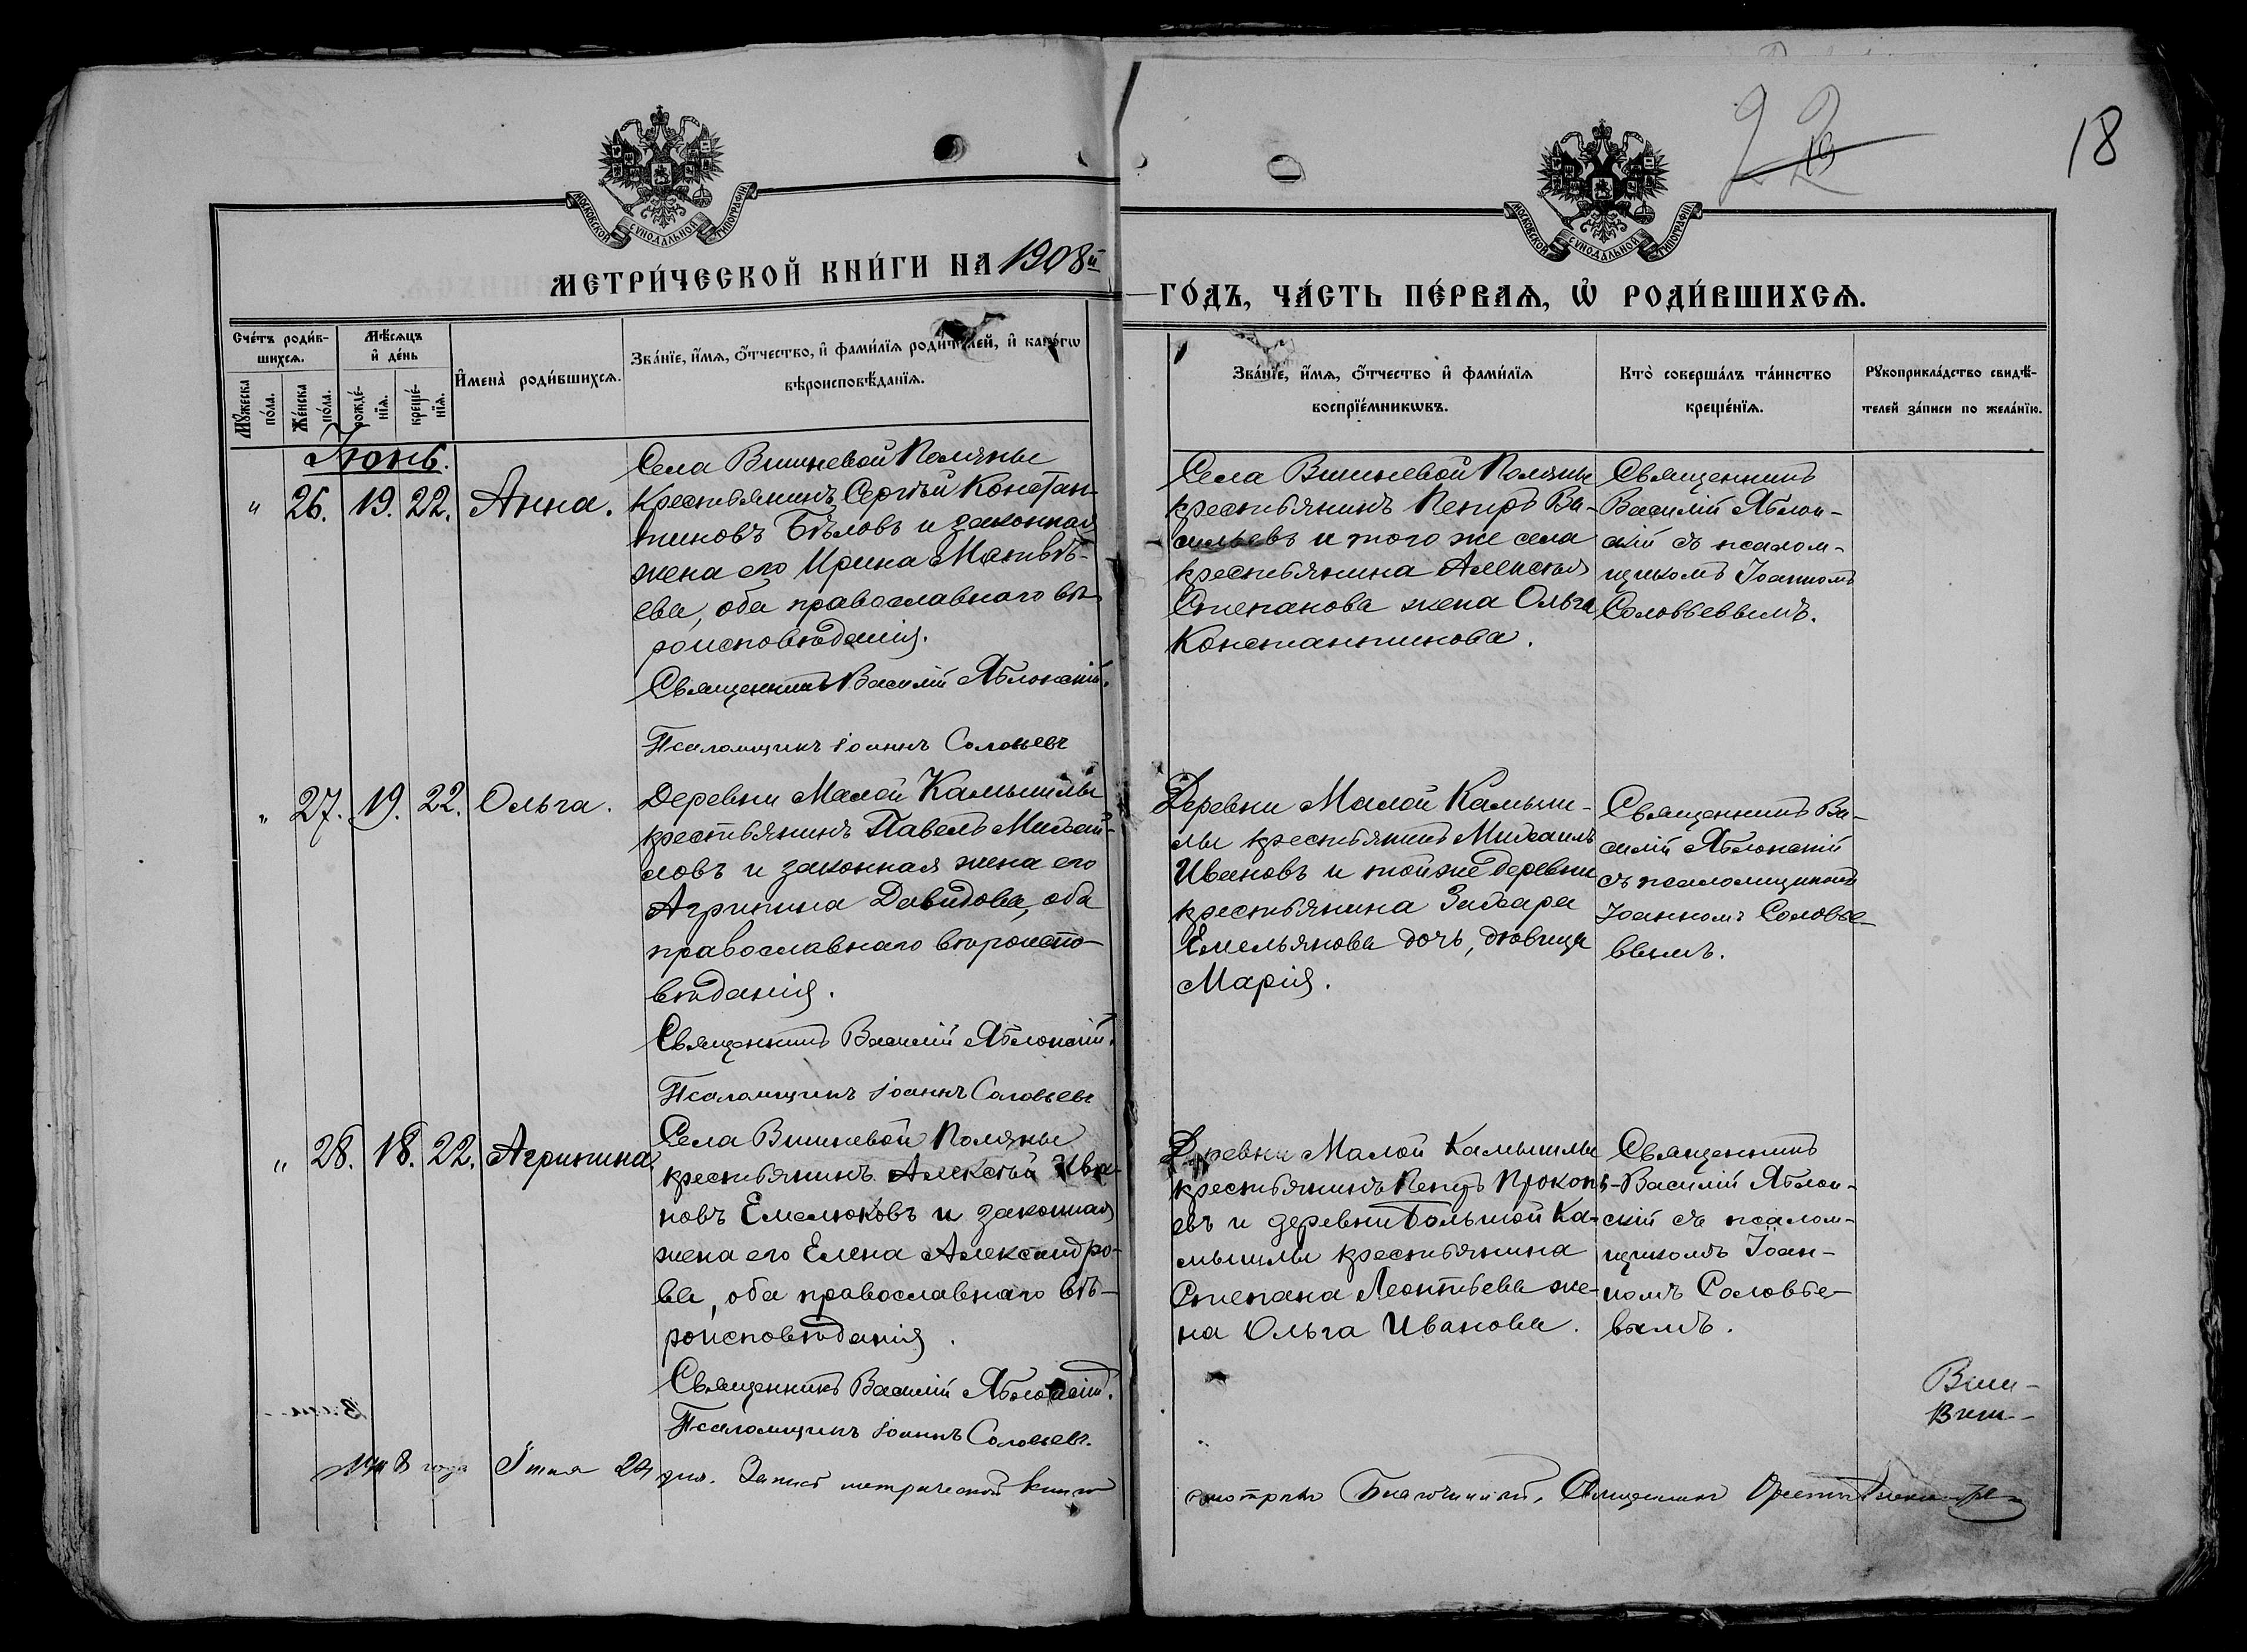 18
МОСКОВСКОЙ СѴНОДАЛЬНОЙ ТИПОГРАФІИ
МОСКОВСКОЙ СѴНОДАЛЬНОЙ ТИПОГРАФІИ
МЕТРИ́ЧЕСКОЙ КНИ́ГИ НА 1908й
ГО́ДЪ, ЧА́СТЬ ПЕ́РВАѦ, Ѡ҆ РОДИ́ВШИХСѦ.
Сче́тъ роди́в-
шихсѧ.
Мѣ́сѧцъ
и҆ де́нь
И҆мена̀ роди́вшихсѧ.
Зва́нїе, и҆́мѧ, ѻ҆́тчество, и҆ фами́лїѧ роди́телей, и҆ како́гѡ
вѣроисповѣ́данїѧ.
Мꙋ́жеска
по́ла.
Же́нска
по́ла.
рожде́-
нїѧ.
креще́-
нїѧ.
Зва́нїе, и҆́мѧ, ѻ҆́тчество и҆ фами́лїѧ
воспрїе́мникѡвъ.
Кто̀ соверша́лъ та́инство
креще́нїѧ.
Рꙋкоприкла́дство свидѣ́-
телей за́писи по жела́нїю.
Іюнь.
" 26. 19. 22. Анна.
Села Вишневой Поляны
крестьянинъ Сергѣй Констан-
тиновъ Бѣловъ и законная
жена его Ирина Матвѣ-
ева, оба православнаго вѣ-
роисповѣданія.
Священникъ Василій Яблонскій.
Псаломщикъ Іоаннъ Соловьевъ
Села Вишневой Поляны
крестьянинъ Петръ Ва-
сильевъ и того же села
крестьянина Алексѣя
Степанова жена Ольга
Константинова.
Священникъ
Василій Яблон-
скій съ псалом-
щикомъ Іоанномъ
Соловьевымъ.
" 27. 19. 22. Ольга.
Деревни Малой Камышлы
крестьянинъ Павелъ Михай-
ловъ и законная жена его
Агрипина Давидова, оба
православнаго вѣроиспо-
вѣданія.
Священникъ Василій Яблонскій.
Псаломщикъ Іоаннъ Соловьевъ
Деревни Малой Камыш-
лы крестьянинъ Михаилъ
Ивановъ и той же деревни
крестьянина Захара
Емельянова дочь, дѣвица
Марія.
Священникъ Ва-
силій Яблонскій
съ псаломщикомъ
Іоанномъ Соловье-
вымъ.
" 28. 18. 22. Агрипина.
Села Вишневой Поляны
крестьянинъ Алексѣй Ива-
новъ Емелюковъ и законная
жена его Елена Александро-
ва, оба православнаго вѣ-
роисповѣданія.
Священникъ Василій Яблонскій.
Псаломщикъ Іоаннъ Соловьевъ.
Деревни Малой Камышлы
крестьянинъ Петръ Прокопь-
евъ и деревни Большой Ка-
мышлы крестьянина
Степана Леонтьева же-
на Ольга Иванова.
Священникъ
Василій Яблон-
скій съ псалом-
щикомъ Іоан-
номъ Соловье-
вымъ.
Виш-
Виш-
1908 года Іюня 29 дня. Запись метрической книги
смотрѣлъ Благочинный, Священникъ